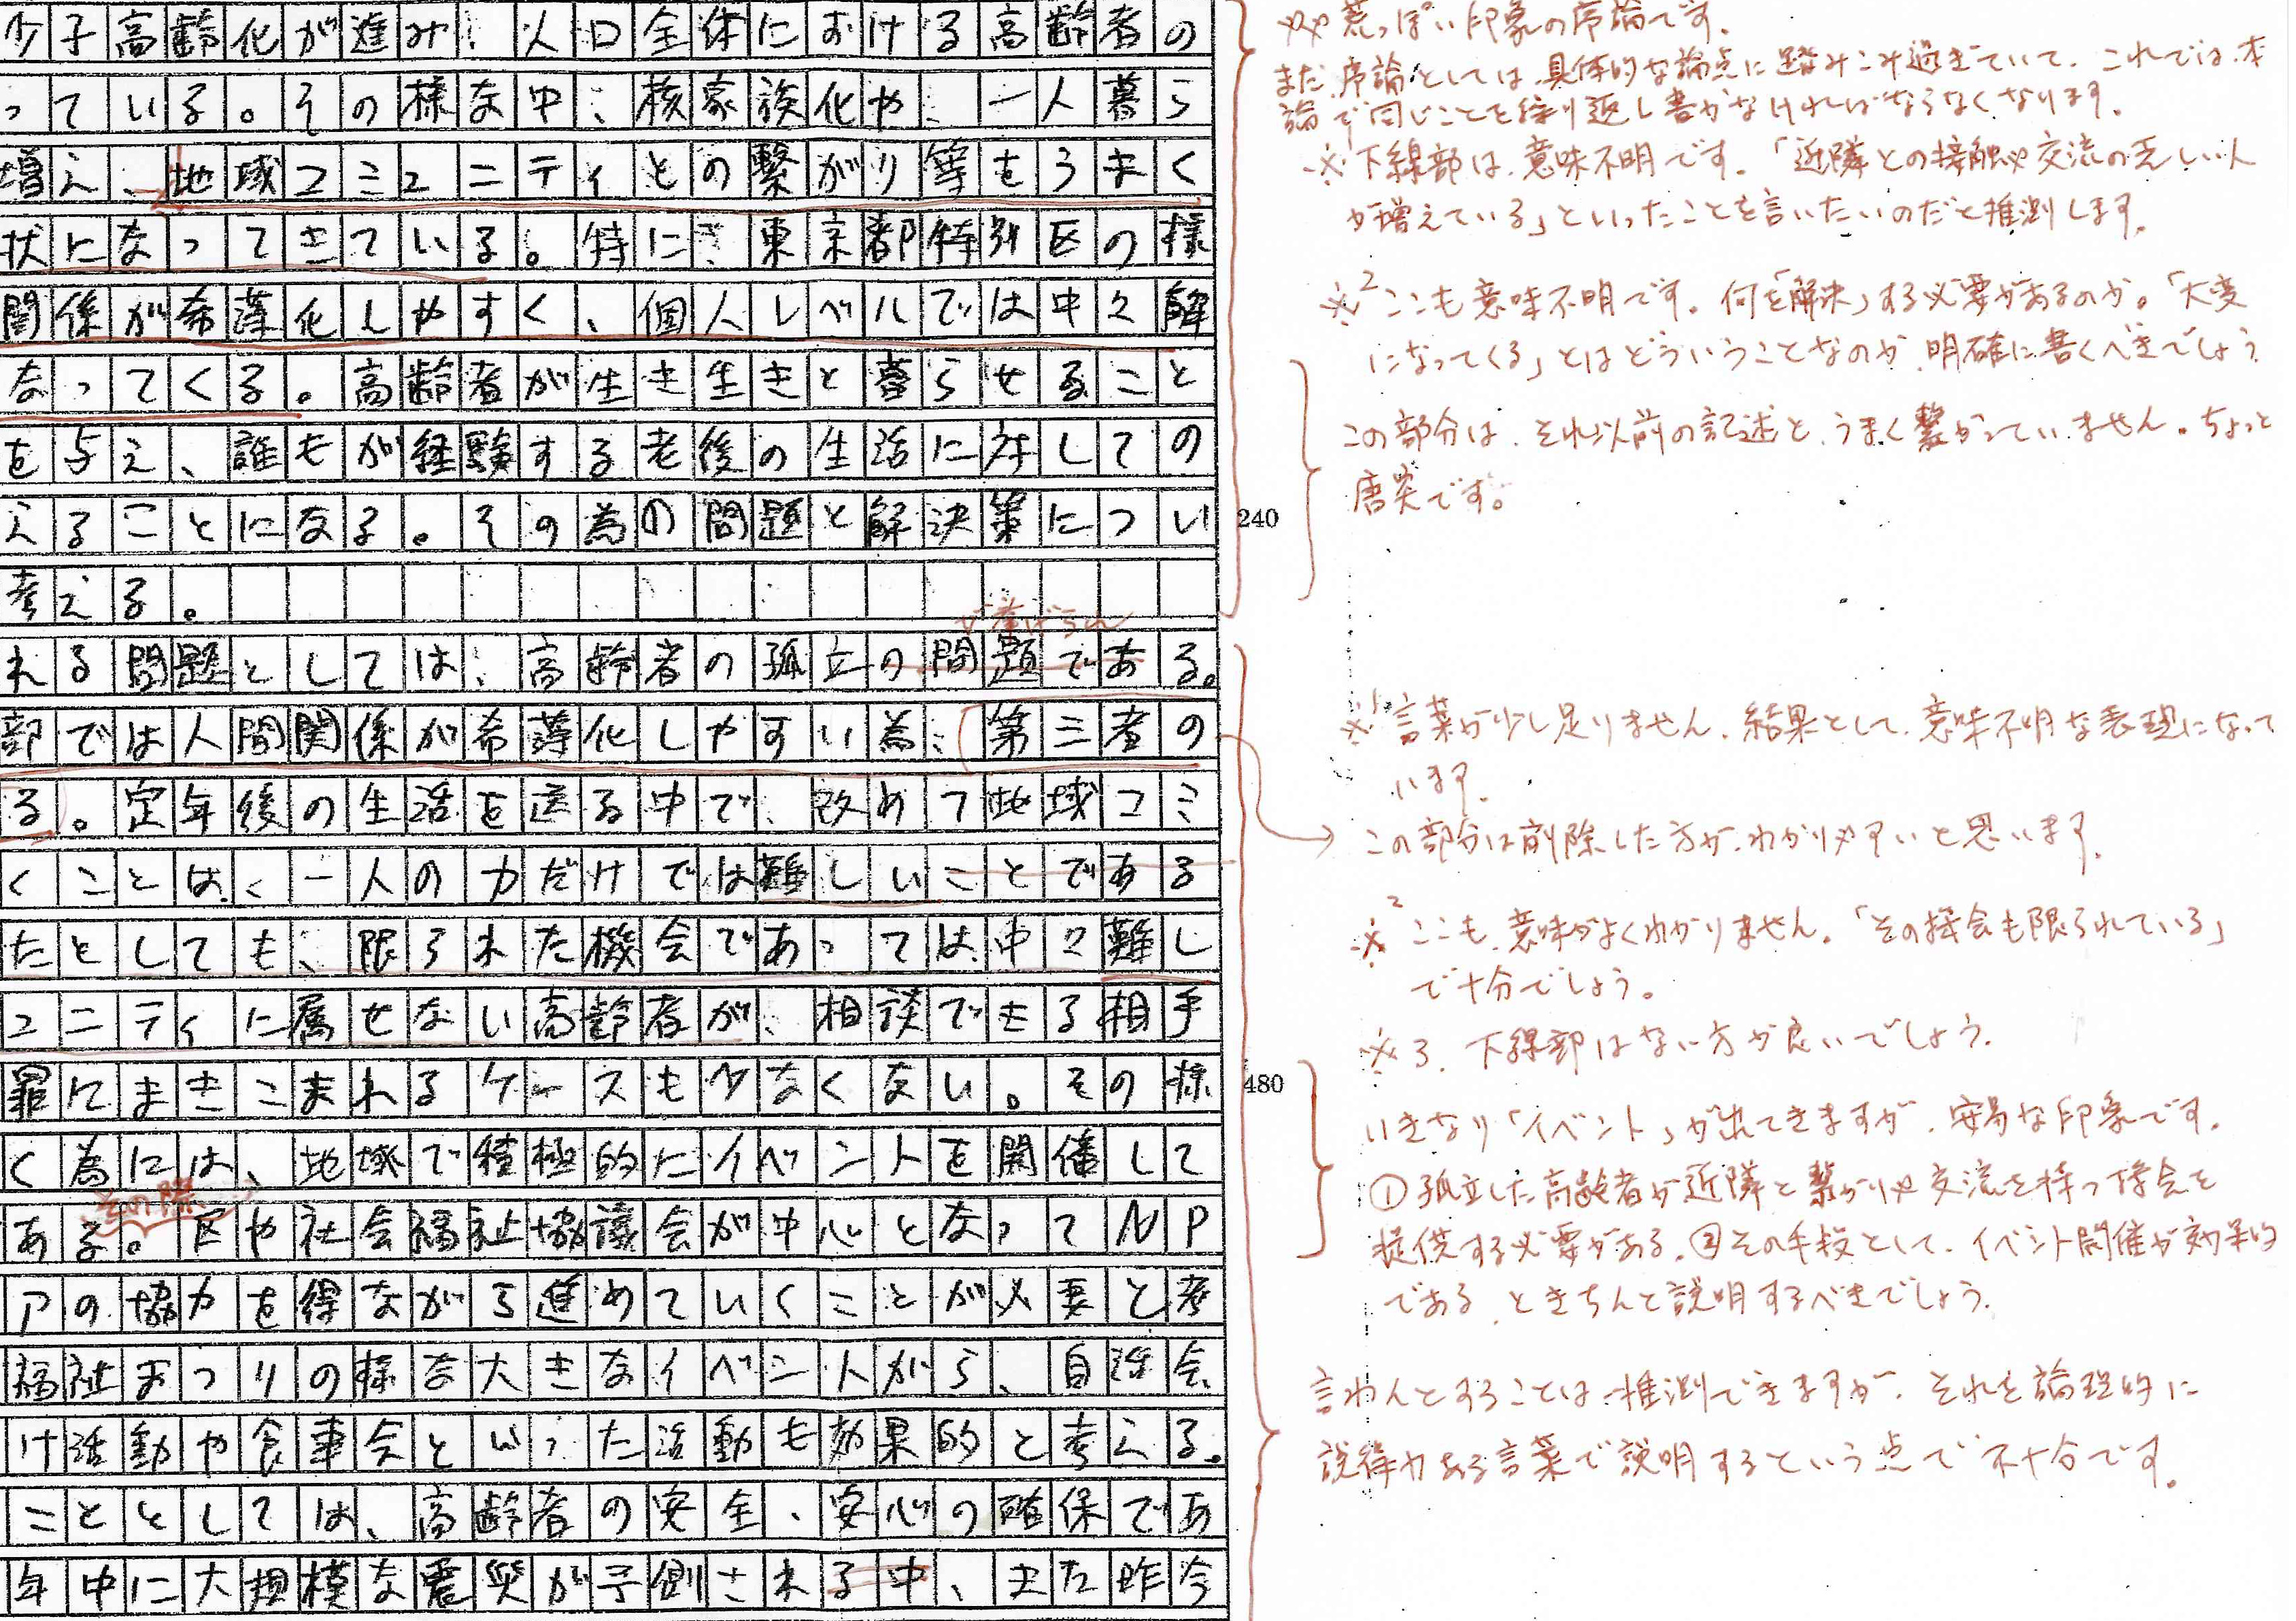 少子高齢化が進み、人口全体における高齢者の
っている。その様な中、核家族化や、一人暮ら
増え、地域コミュニティとの繋がり等もうまく
状になってきている。特に、東京都特別区の様
関係が希薄化しやすく、個人レベルでは中々解
なってくる。高齢者が生き生きと暮らせること
を与え、誰もが経験する老後の生活に対しての
えることになる。その為の問題と解決策につい
240
考える。
が挙げられ
れる問題としては、高齢者の孤立の問題である。
部では人間関係が希薄化しやすい為、第三者の
る。定年後の生活を送る中で、改めて地域コミ
くことは、一人の力だけでは難しいことである
たとしても、限られた機会であっては中々難し
ュニティに属せない高齢者が、相談できる相手
罪にまきこまれるケースも少なくない。その様
480
く為には、地域で積極的にイベントを開催して
その際
ある。区や社会福祉協議会が中心となってNP
アの協力を得ながら進めていくことが必要と考
福祉まつりの様な大きなイベントから、自治会
け活動や食事会といった活動も効果的と考える。
こととしては、高齢者の安全、安心の確保であ
年中に大規模な震災が予測される中、また昨今
やや荒っぽい印象の序論です。
また、序論としては、具体的な論点に踏みこみ過ぎていて、これでは、本
論で同じことを繰り返し書かなければならなくなります。
※下線部は、意味不明です。「近隣との接触や交流の乏しい人
が増えている」といったことを言いたいのだと推測します。
※2 ここも意味不明です。何を「解決」する必要があるのか。「大変
になってくる」とはどういうことなのか、明確に書くべきでしょう。
この部分は、それ以前の記述と、うまく繋がっていません。ちょっと
唐突です。
※1 言葉が少し足りません。結果として、意味不明な表現になって
います。
この部分は削除した方が、わかりやすいと思います。
※2 ここも、意味がよくわかりません。「その機会も限られている」
で十分でしょう。
※3. 下線部はない方が良いでしょう。
いきなり「イベント」が出てきますが、安易な印象です。
①孤立した高齢者が近隣と繋がりや交流を持つ機会を
提供する必要がある。②その手段として、イベント開催が効果的
である、ときちんと説明するべきでしょう。
言わんとすることは推測できますが、それを論理的に
説得力ある言葉で説明するという点で不十分です。